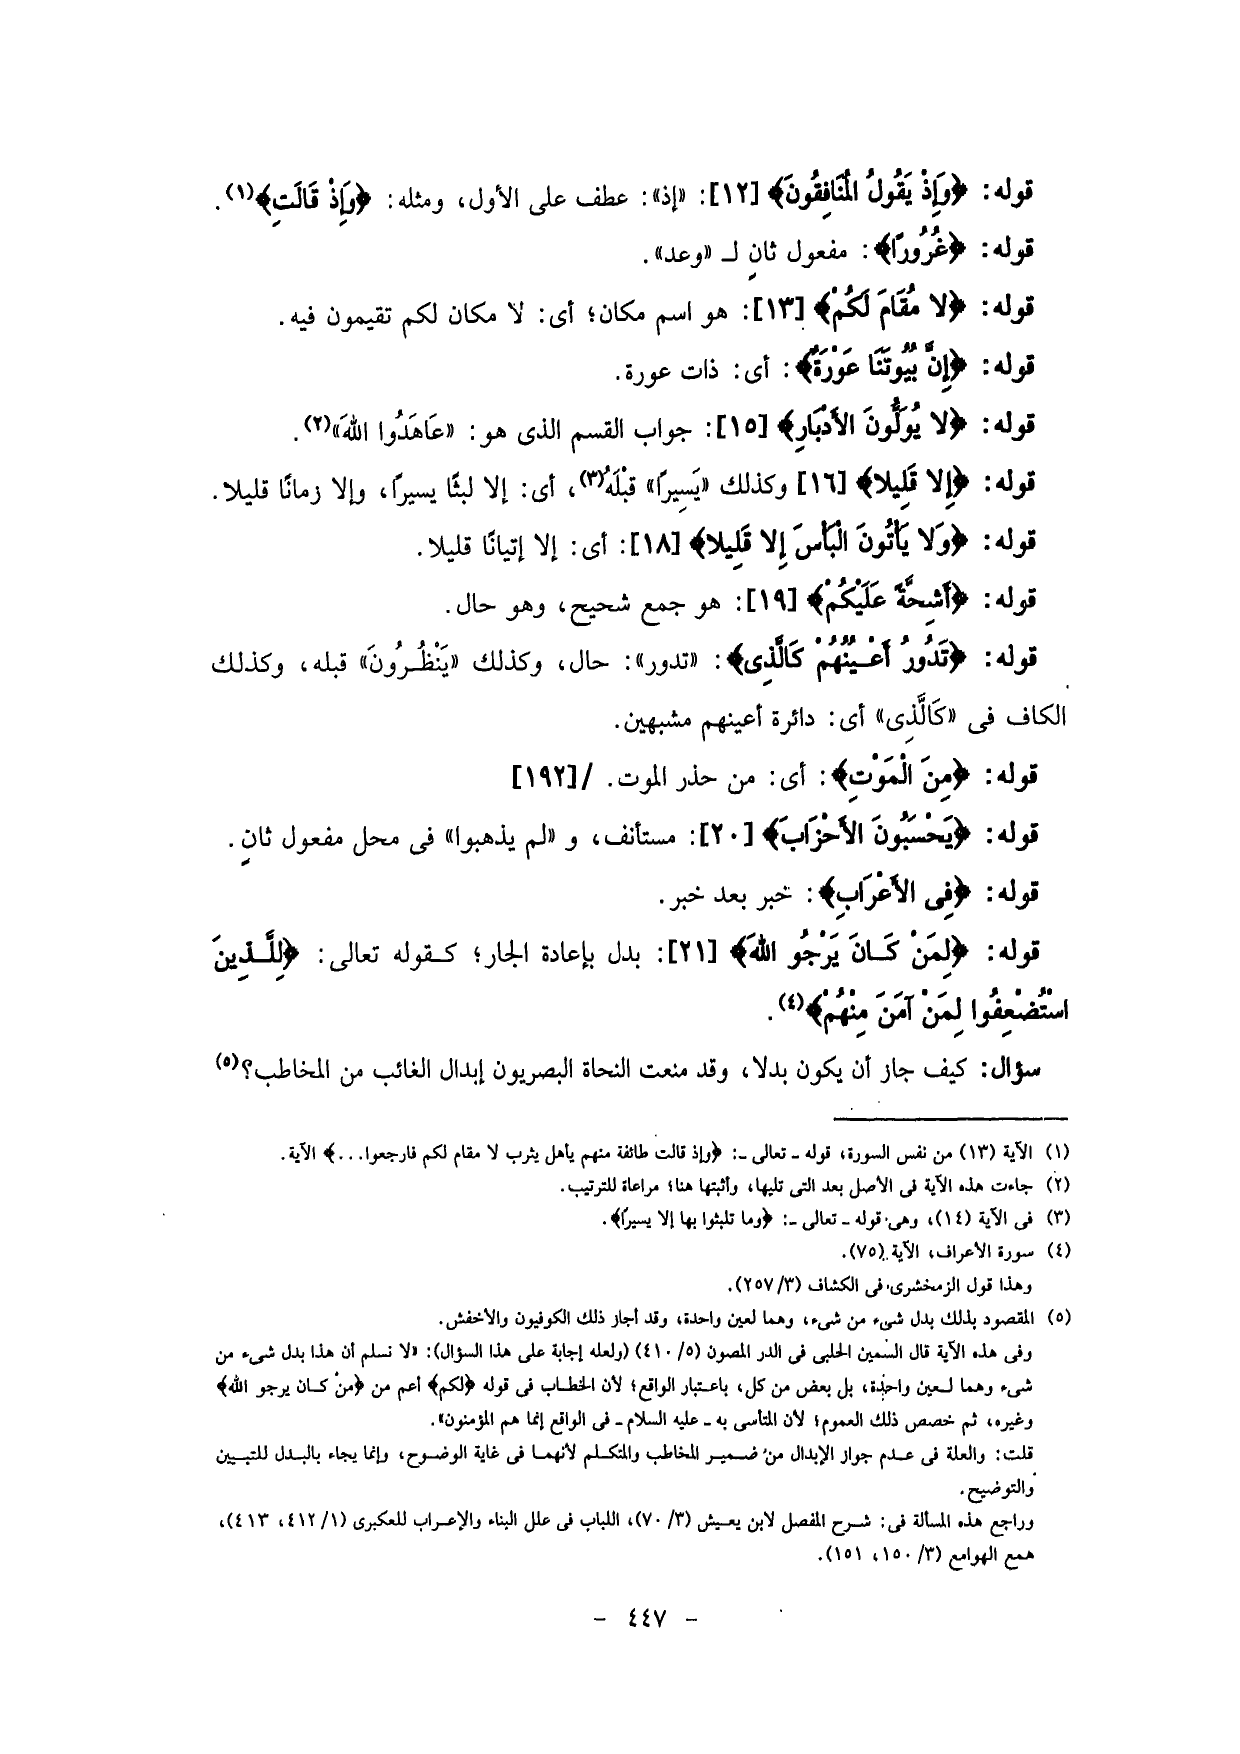 قوله: ﴿وَإِذْ يَقُولُ الْمُنَافِقُونَ﴾ [١٢]: «إذ»: عطف على الأول، ومثله: ﴿وَإِذْ قَالَتِ﴾(١).
قوله: ﴿غُرُورًا﴾: مفعول ثانٍ لـ «وعد».
قوله: ﴿لا مُقَامَ لَكُمْ﴾ [١٣]: هو اسم مكان؛ أى: لا مكان لكم تقيمون فيه.
قوله: ﴿إِنَّ بُيُوتَنَا عَوْرَةٌ﴾: أى: ذات عورة.
قوله: ﴿لا يُوَلُّونَ الأَدْبَارِ﴾ [١٥]: جواب القسم الذى هو: «عَاهَدُوا اللهَ»(٢).
قوله: ﴿إِلا قَلِيلا﴾ [١٦] وكذلك «يَسِيرًا» قبْلَهُ(٣)، أى: إلا لبثًا يسيرًا، وإلا زمانًا قليلا.
قوله: ﴿وَلا يَأْتُونَ الْبَأْسَ إِلا قَلِيلا﴾ [١٨]: أى: إلا إتيانًا قليلا.
قوله: ﴿أَشِحَّةً عَلَيْكُمْ﴾ [١٩]: هو جمع شحيح، وهو حال.
قوله: ﴿تَدُورُ أَعْيُنُهُمْ كَالَّذِى﴾: «تدور»: حال، وكذلك «يَنْظُرُونَ» قبله، وكذلك
الكاف فى «كَالَّذِى» أى: دائرة أعينهم مشبهين.
قوله: ﴿مِنَ الْمَوْتِ﴾: أى: من حذر الموت. /[١٩٢]
قوله: ﴿يَحْسَبُونَ الأَحْزَابَ﴾ [٢٠]: مستأنف، و «لم يذهبوا» فى محل مفعول ثانٍ.
قوله: ﴿فِى الأَعْرَابِ﴾: خبر بعد خبر.
قوله: ﴿لِمَنْ كَانَ يَرْجُو اللهَ﴾ [٢١]: بدل بإعادة الجار؛ كقوله تعالى: ﴿لِلَّذِينَ
اسْتُضْعِفُوا لِمَنْ آمَنَ مِنْهُمْ﴾(٤).
سؤال: كيف جاز أن يكون بدلا، وقد منعت النحاة البصريون إبدال الغائب من المخاطب؟(٥)
(١) الآية (١٣) من نفس السورة، قوله ـ تعالى ـ: ﴿وإذ قالت طائفة منهم يأهل يثرب لا مقام لكم فارجعوا...﴾ الآية.
(٢) جاءت هذه الآية فى الأصل بعد التى تليها، وأثبتها هنا؛ مراعاة للترتيب.
(٣) فى الآية (١٤)، وهى قوله ـ تعالى ـ: ﴿وما تلبثوا بها إلا يسيرًا﴾.
(٤) سورة الأعراف، الآية (٧٥).
وهذا قول الزمخشرى فى الكشاف (٣/ ٢٥٧).
(٥) المقصود بذلك بدل شىء من شىء، وهما لعين واحدة، وقد أجاز ذلك الكوفيون والأخفش.
وفى هذه الآية قال السمين الحلبى فى الدر المصون (٥/ ٤١٠) (ولعله إجابة على هذا السؤال): «لا نسلم أن هذا بدل شىء من
شىء وهما لعين واحدة، بل بعض من كل، باعتبار الواقع؛ لأن الخطاب فى قوله ﴿لكم﴾ أعم من ﴿منْ كان يرجو الله﴾
وغيره، ثم خصص ذلك العموم؛ لأن المتأسى به ـ عليه السلام ـ فى الواقع إنما هم المؤمنون».
قلت: والعلة فى عدم جواز الإبدال من ضمير المخاطب والمتكلم لأنهما فى غاية الوضوح، وإنما يجاء بالبدل للتبيين
والتوضيح.
وراجع هذه المسألة فى: شرح المفصل لابن يعيش (٣/ ٧٠)، اللباب فى علل البناء والإعراب للعكبرى (١/ ٤١٢، ٤١٣)،
همع الهوامع (٣/ ١٥٠، ١٥١).
- ٤٤٧ -